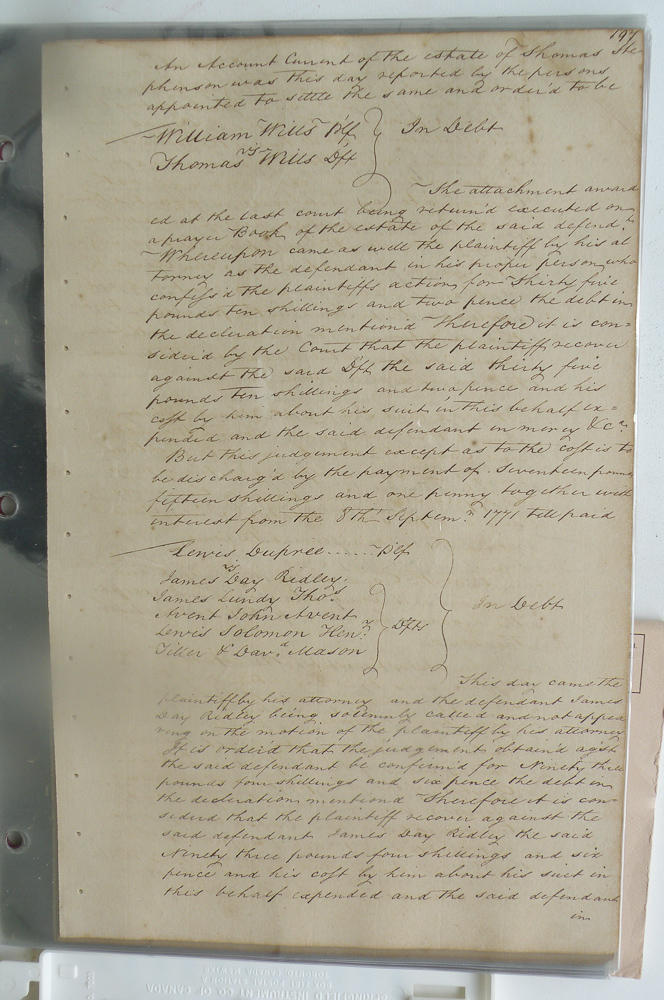 197
An Account Current of the estate of Thomas Ste
phenson was this day reported by the persons
appointed to settle the same and order'd to be
William Wills Plf
vs
Thomas Wills Dft
In Debt
The attachment award
ed at the last court being return'd executed on
a prayer Book of the estate of the said defend.t
Whereupon came as well the plaintiff by his at
torney as the defendant in his proper person who
confess'd the plaintiffs action for Thirty five
pounds ten shillings and two pence the debt in
the declaration mention'd Therefore it is con=
sider'd by the Court that the plaintiff recover
against the said Dft the said thirty five
pounds ten shillings and two pence and his
cost by him about his suit in this behalf ex=
pended and the said defendant in mercy &c.a
But this judgement except as to the cost is to
be discharg'd by the payment of Seventeen pounds
fifteen shillings and one penny together with
interest from the 8th Septem.r 1771 till paid
Lewis Dupree...... Plf
vs
James Day Ridley.
James Lundy Tho.s
Avent John Avent
Lewis Solomon Hen.y
Tiller & Dav.d Mason
Dfts
In Debt
This day came the
plaintiff by his attorney and the defendant James
Day Ridley being solemnly called and not appea
ring on the motion of the plaintiff by his attorney
It is order'd that the judgement obtain'd agst
the said defendant be confirm'd for Ninety three
pounds four shillings and six pence the debt in
the declaration mentiond Therefore it is con=
siderd that the plaintiff recover against the
said defendant James Day Ridley the said
Ninety three pounds four shillings and six
pence and his cost by him about his suit in
this behalf expended and the said defendant
in
SPRINGFIELD INSTRUMENT CO OF CANADA